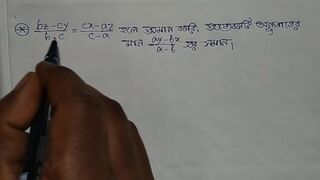 ⊛ \frac{bz-cy}{b-c} = \frac{cx-az}{c-a} হলে প্রমান করি, প্রত্যেকটি অনুপাতের
মান \frac{ay-bx}{a-b} এর সমান।